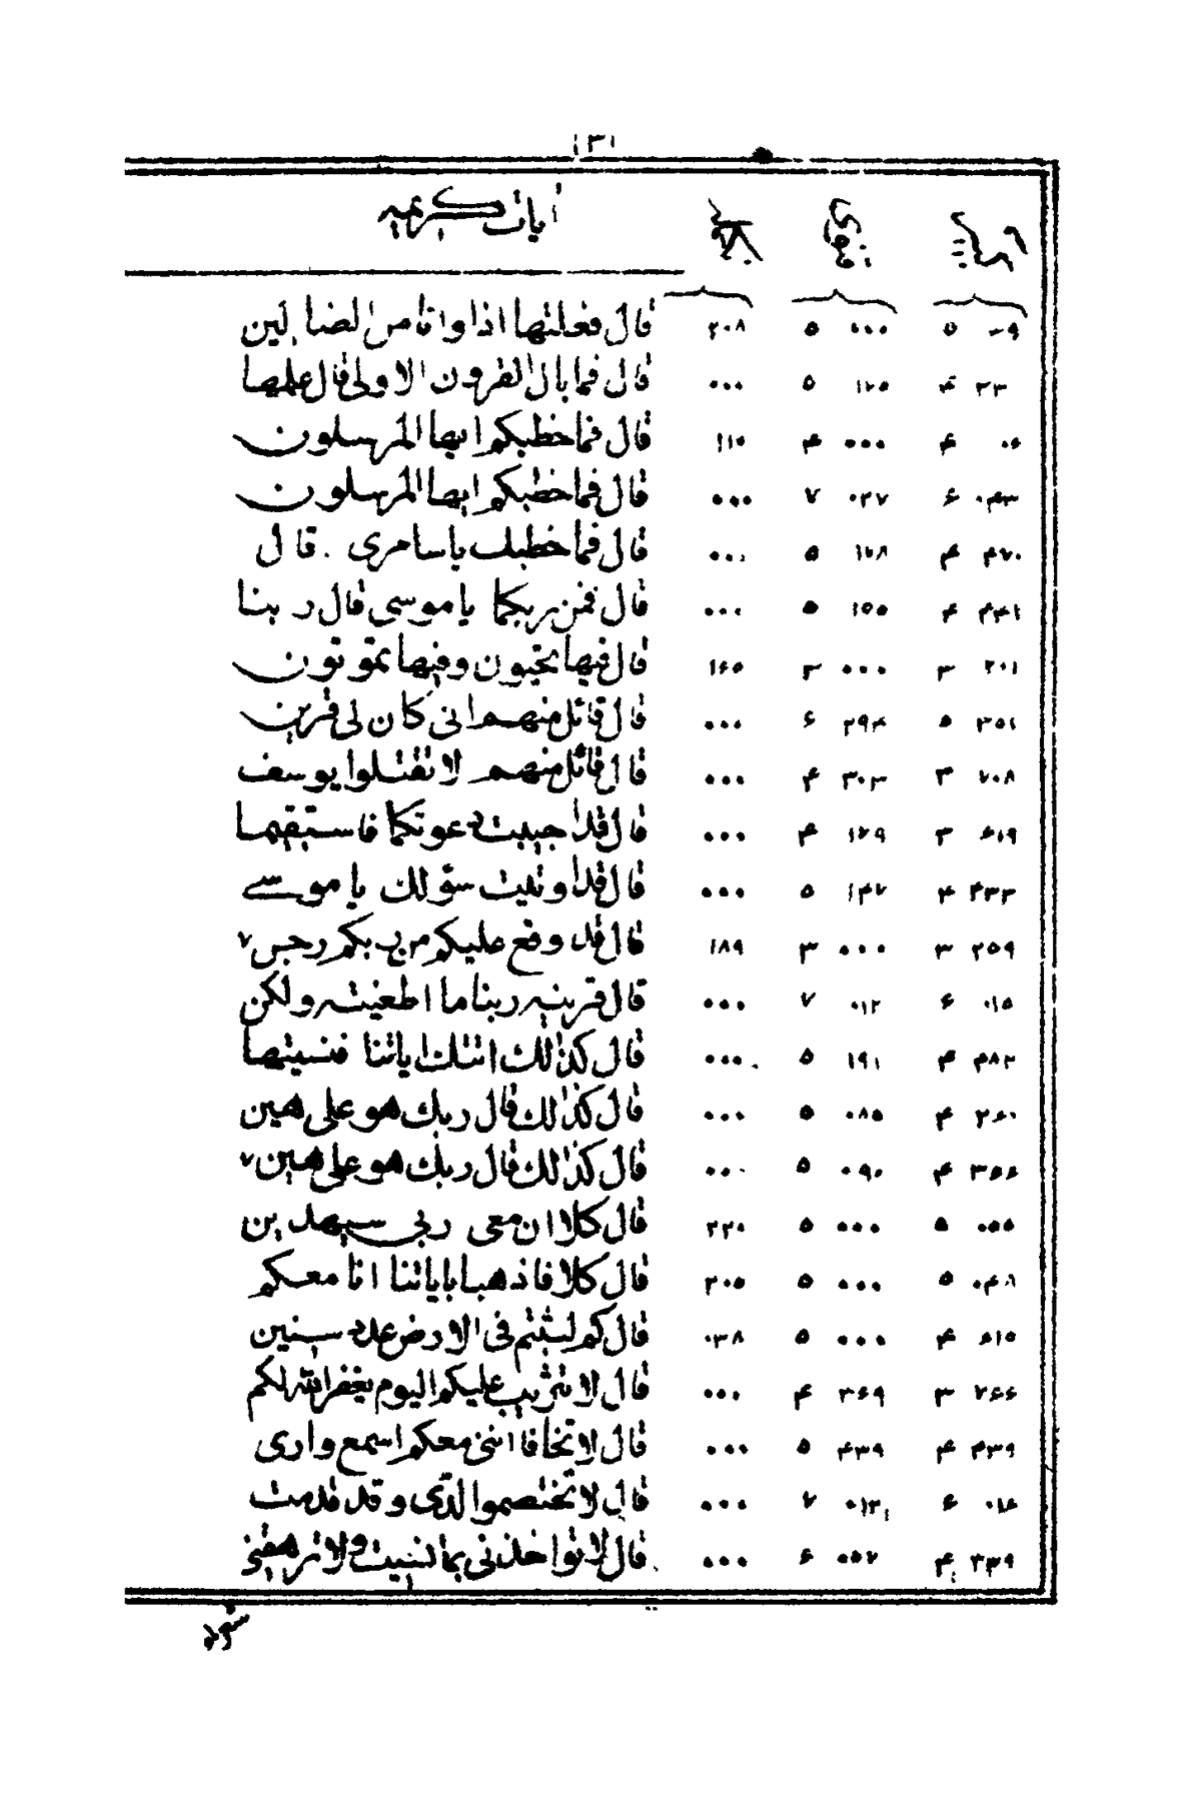 ١٣١
آيات كريمه
٠٣٩ ٥ ٠٠٠ ٥ ٢٠٨ قال فعلتها اذا وانا من الضالين
٢٣ ۴ ١٢٥ ٥ ٠٠٠ قال فما بال القرون الاولى قال علمها
٠۶ ۴ ٠٠٠ ۴ ١١٥ قال فما خطبكم ايها المرسلون
٠۴٣ ۶ ٠٢٧ ٧ ٠٠٠ قال فما خطبكم ايها المرسلون
۴٧٠ ۴ ١٢٨ ٥ ٠٠٠ قال فما خطبك ياسامرى . قال
۴۴١ ۴ ١٥٥ ٥ ٠٠٠ قال فمن ربكما ياموسى قال ربنا
٢٠١ ٣ ٠٠٠ ٣ ١۶٥ قال فيها تحيون وفيها تموتون
٣٥١ ٥ ٢٩۴ ۶ ٠٠٠ قال قائل منهم انى كان لى قرين
٧٠٨ ٣ ٣٠٣ ۴ ٠٠٠ قال قائل منهم لا تقتلوا يوسف
۶١٩ ٣ ١٢٩ ۴ ٠٠٠ قال قد اجيبت دعوتكما فاستقيما
۴٣٣ ۴ ١۴٧ ٥ ٠٠٠ قال قد اوتيت سؤلك ياموسے
٢٥٩ ٣ ٠٠٠ ٣ ١٨٩ قال قد وقع عليكم من ربكم رجس ٧
٠١٥ ۶ ٠١٢ ٧ ٠٠٠ قال قرينه ربنا ما اطغيته ولكن
۴٨٢ ۴ ١٩١ ٥ ٠٠٠ قال كذالك اتتك اياتنا فنسيتها
٢۶٠ ۴ ٠٨٥ ٥ ٠٠٠ قال كذالك قال ربك هو على هين
٣٥۶ ۴ ٠٩٠ ٥ ٠٠٠ قال كذالك قال ربك هو على هين ٧
٠٥٥ ٥ ٠٠٠ ٥ ٢٢٠ قال كلا ان معى ربى سيهدين
٠۴٨ ٥ ٠٠٠ ٥ ٢٠٥ قال كلا فاذهبا باياتنا انا معكم
۶١٥ ۴ ٠٠٠ ٥ ٠٣٨ قال كم لبثتم فى الارض عدد سنين
٧۶۶ ٣ ٣۶٩ ۴ ٠٠٠ قال لا تثريب عليكم اليوم يغفر الله لكم
۴٣٩ ۴ ۴٣٩ ٥ ٠٠٠ قال لا تخافا اننى معكما اسمع وارى
٠١۶ ۶ ٠١٣ ٧ ٠٠٠ قال لا تختصموا لدى وقد قدمت
٢٣٩ ۴ ٠٥٧ ۶ ٠٠٠ قال لا تواخذنى بما نسيت ولا ترهقنى